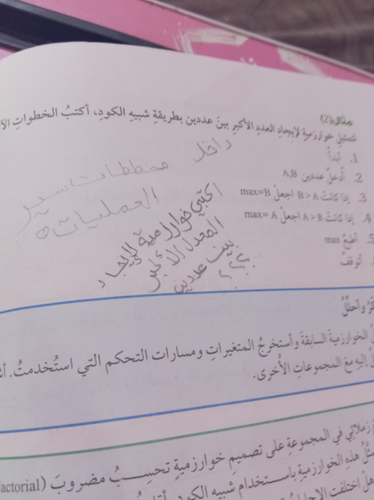 مثال (2)
لتمثيل خوارزمية لإيجاد العدد الأكبر بين عددين بطريقةِ شبيهِ الكودِ، أكتبُ الخطواتِ
1. ابدأ
2. أدخلْ عددين A,B
3. إذا كانتْ B > A اجعلْ max=B
4. إذا كانتْ A > B اجعلْ max= A
5. اطبعْ max
6. توقفْ
داخل مخططات سير
العمليات
اكتبي خوارزمية لإيجاد
بين عددين
؟؟؟
وأحلّلُ
الخوارزميةَ السابقةَ وأستخرجُ المتغيراتِ ومساراتِ التحكمِ التي استُخدمتْ.
إليهِ معَ المجموعاتِ الأُخرى.
زملائي في المجموعةِ على تصميمِ خوارزميةٍ تحسبُ مضروبَ (actorial
هذهِ الخوارزميةِ باستخدامِ شبيهِ الكودِ.